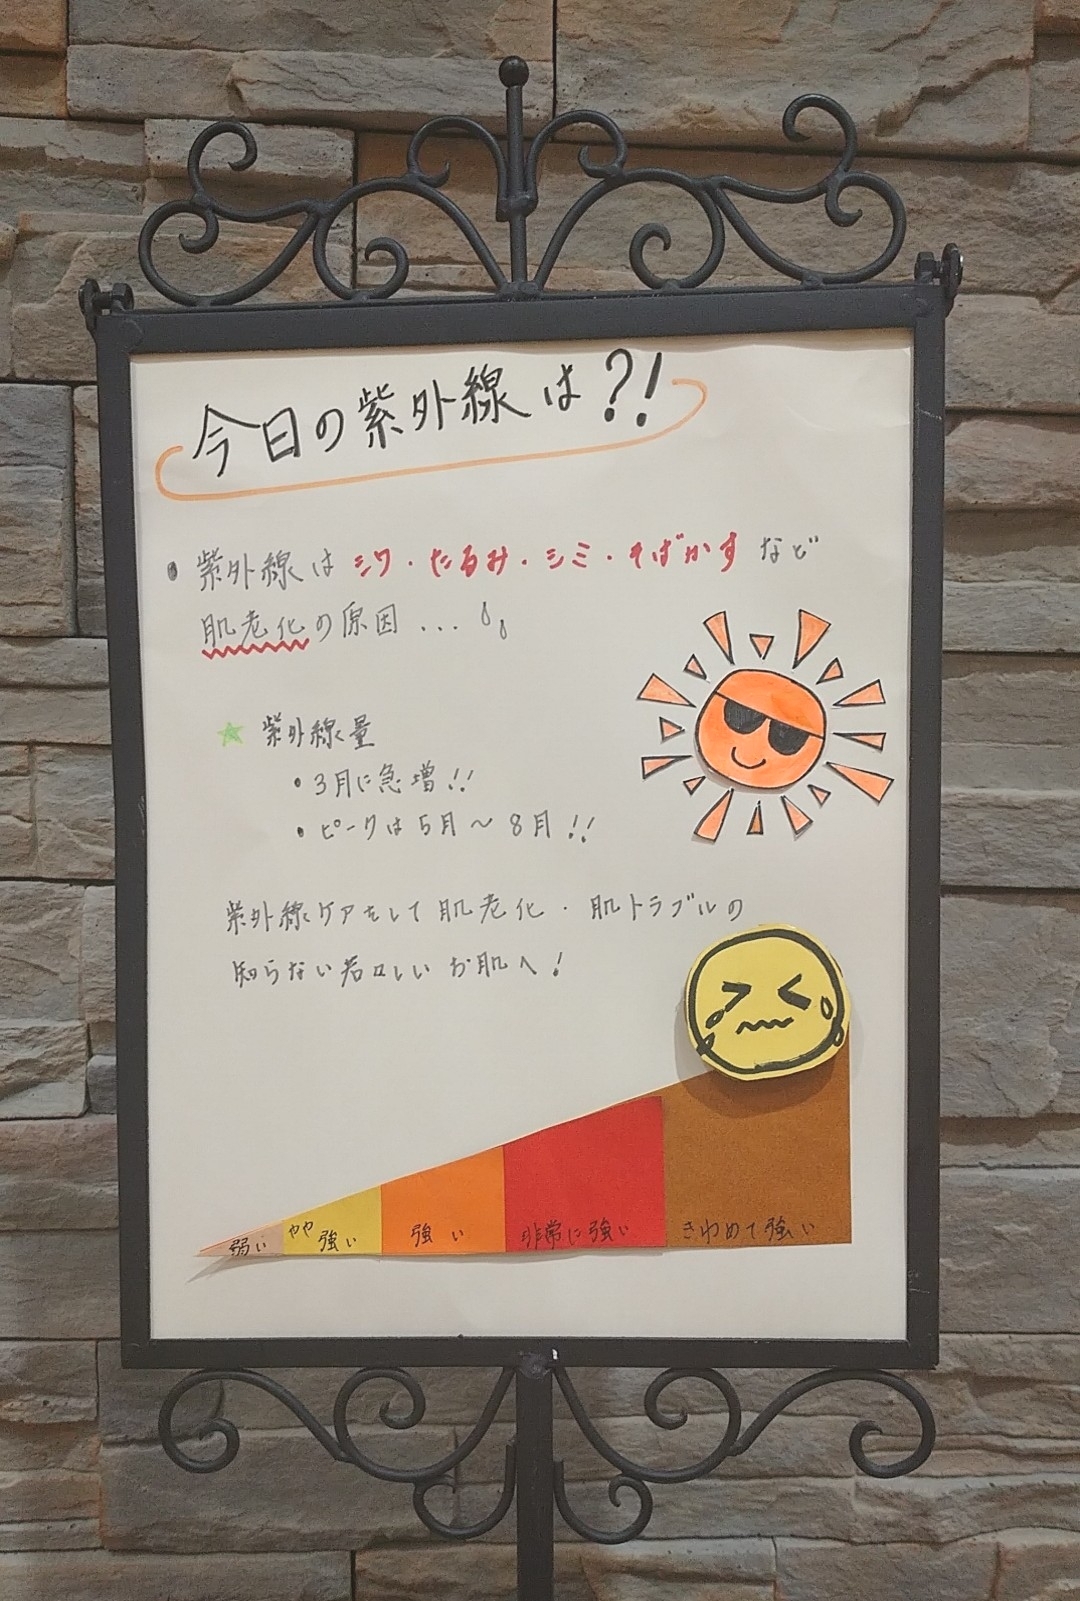 今日の紫外線は?!
• 紫外線はシワ・たるみ・シミ・そばかすなど
肌老化の原因...
☆ 紫外線量
• 3月に急増!!
• ピークは5月〜8月!!
紫外線ケアをして肌老化・肌トラブルの
知らない若々しいお肌へ!
弱い
やや強い
強い
非常に強い
きわめて強い